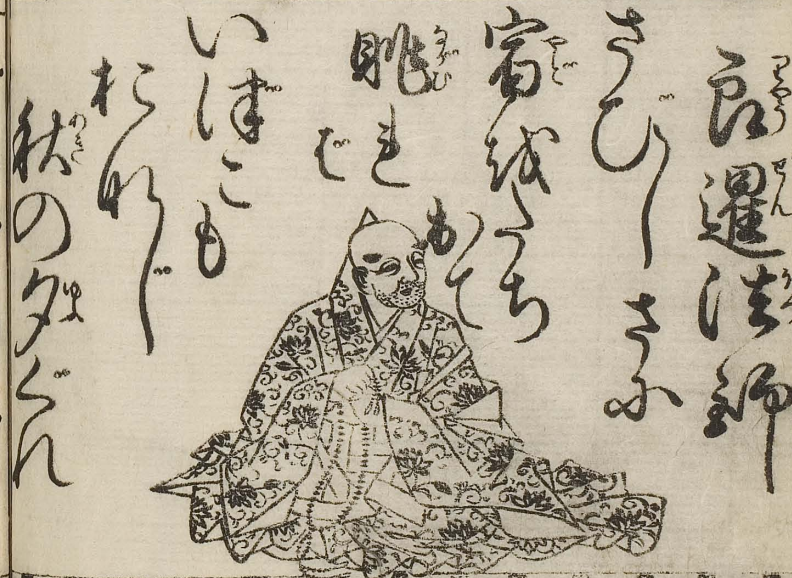 良暹法師
さびしさに
宿をたち
出て
眺れ
ば
いづこも
おなじ
秋の夕ぐれ